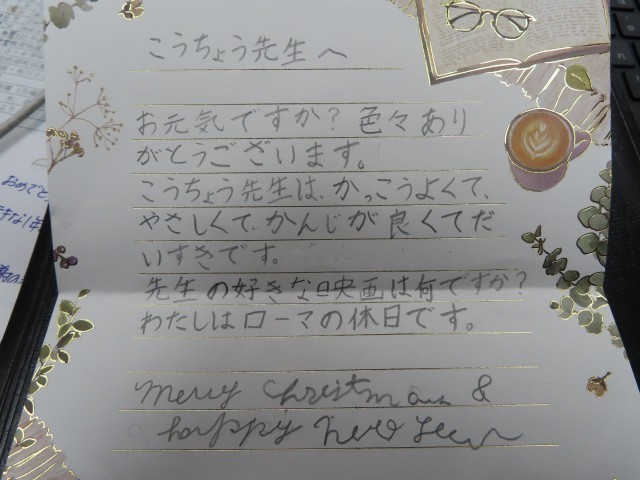 こうちょう先生へ
お元気ですか？色々あり
がとうございます。
こうちょう先生は、かっこうよくて、
やさしくて、かんじが良くてだ
いすきです。
先生の好きな映画は何ですか？
わたしはローマの休日です。
merry christmas &
happy new year
おめでと